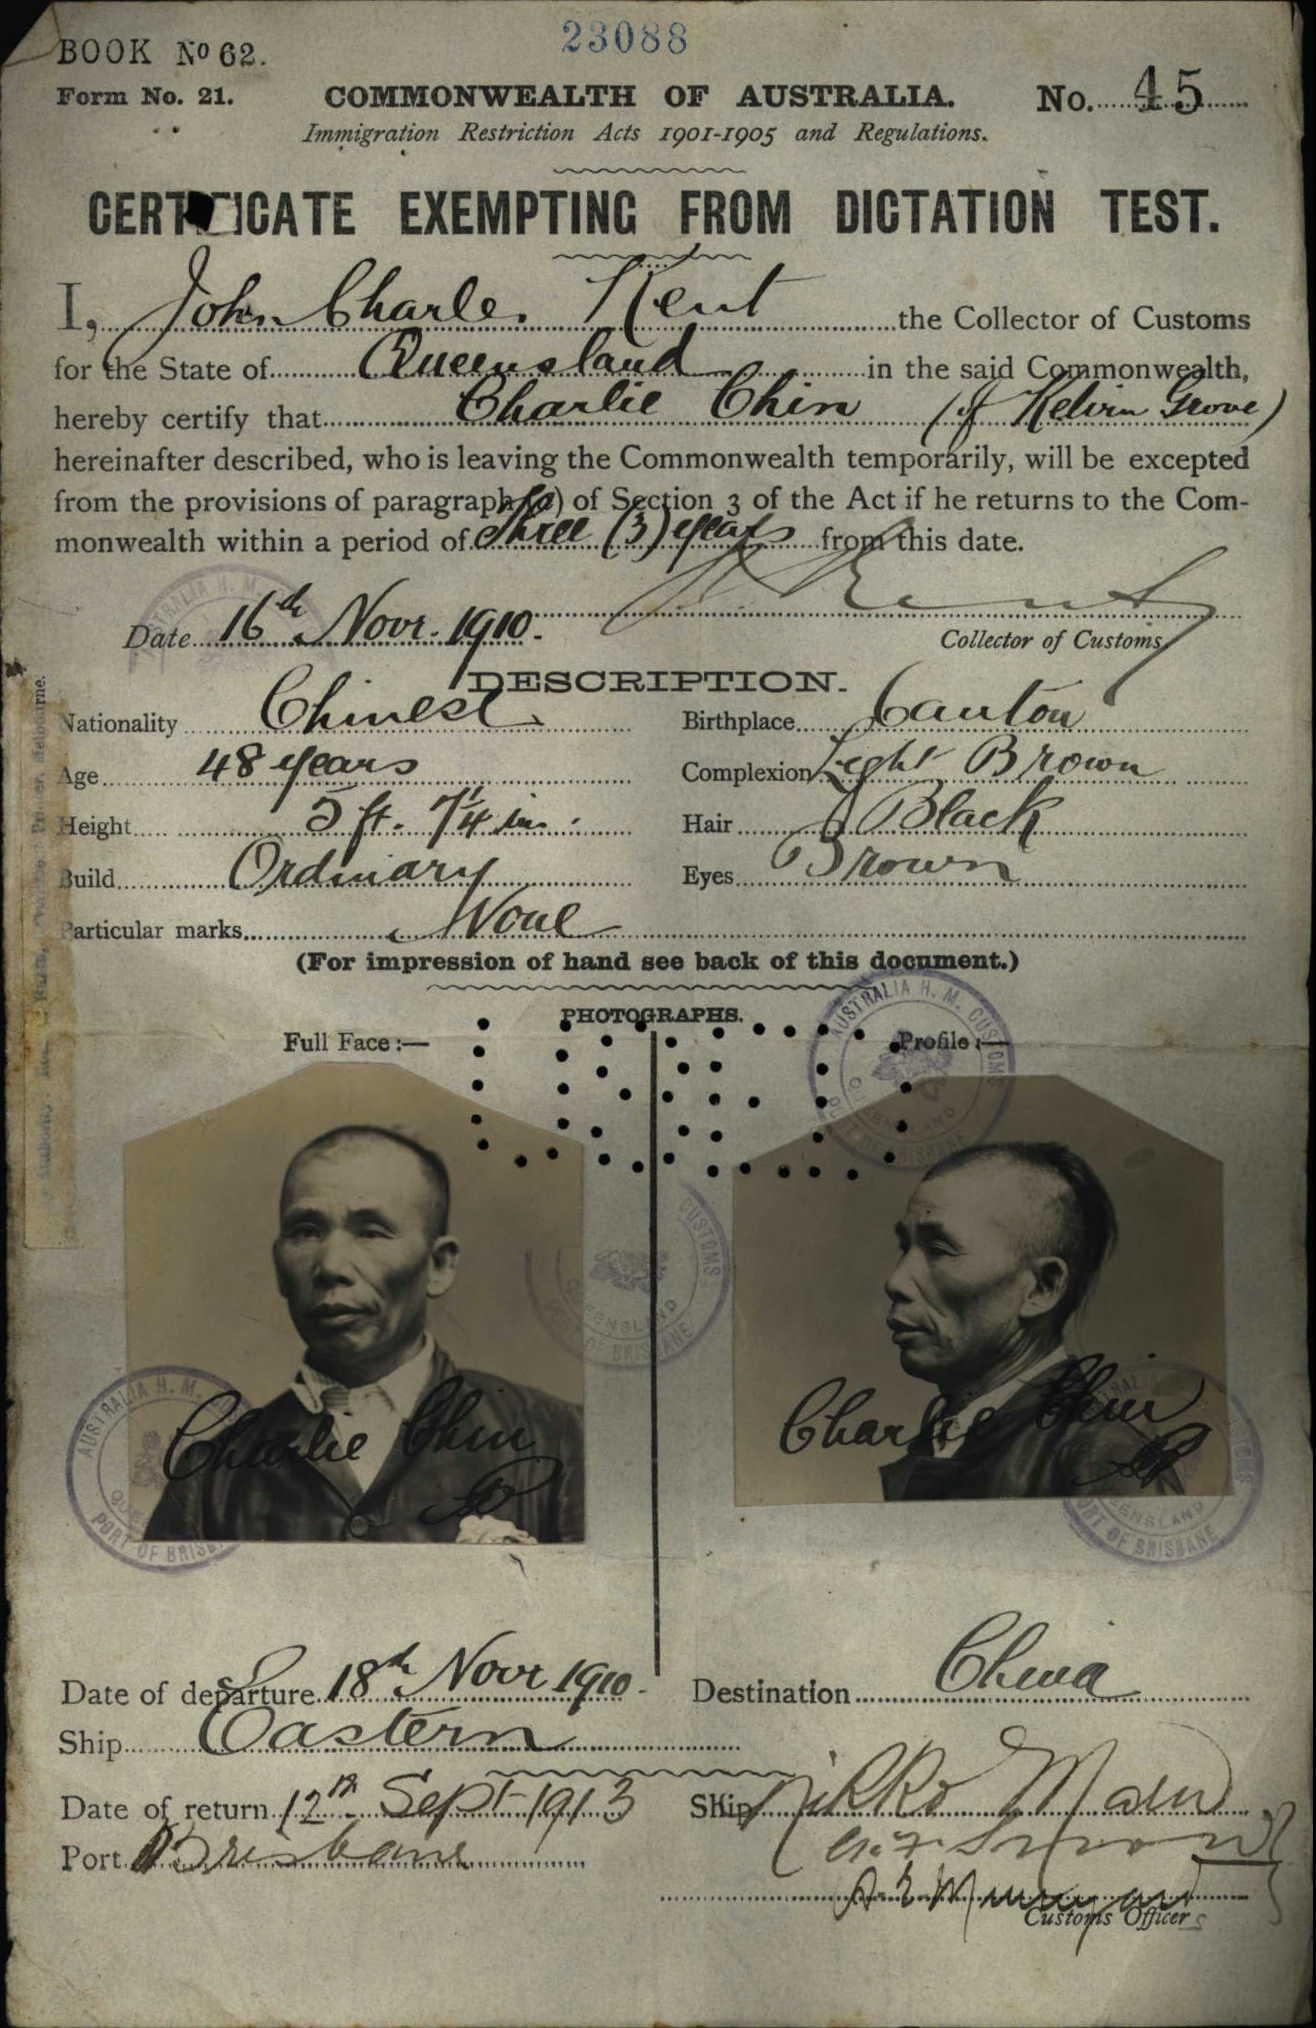 23088
BOOK No 62.
Form No. 21.
COMMONWEALTH OF AUSTRALIA.
No. 45
Immigration Restriction Acts 1901-1905 and Regulations.
CERTIFICATE EXEMPTING FROM DICTATION TEST.
I, John Charles Kent the Collector of Customs
for the State of Queensland in the said Commonwealth,
hereby certify that Charlie Chin (of Kelvin Grove)
hereinafter described, who is leaving the Commonwealth temporarily, will be excepted
from the provisions of paragraph (a) of Section 3 of the Act if he returns to the Com-
monwealth within a period of three (3) years from this date.
Date 16th Novr. 1910.
Kent
Collector of Customs.
DESCRIPTION.
Nationality Chinese
Birthplace Canton
Age 48 years
Complexion Light Brown
Height 5 ft. 7 1/4 in.
Hair Black
Build Ordinary
Eyes Brown
Particular marks None
(For impression of hand see back of this document.)
PHOTOGRAPHS.
Full Face :—
Profile :—
AUSTRALIA H. M. CUSTOMS
QUEENSLAND
PORT OF BRISBANE
Charlie Chin
Charlie Chin
Date of departure 18th Novr 1910.
Destination China
Ship Eastern
Date of return 12th Sept 1913
Ship Nikko Maru
Port Brisbane
Customs Officers